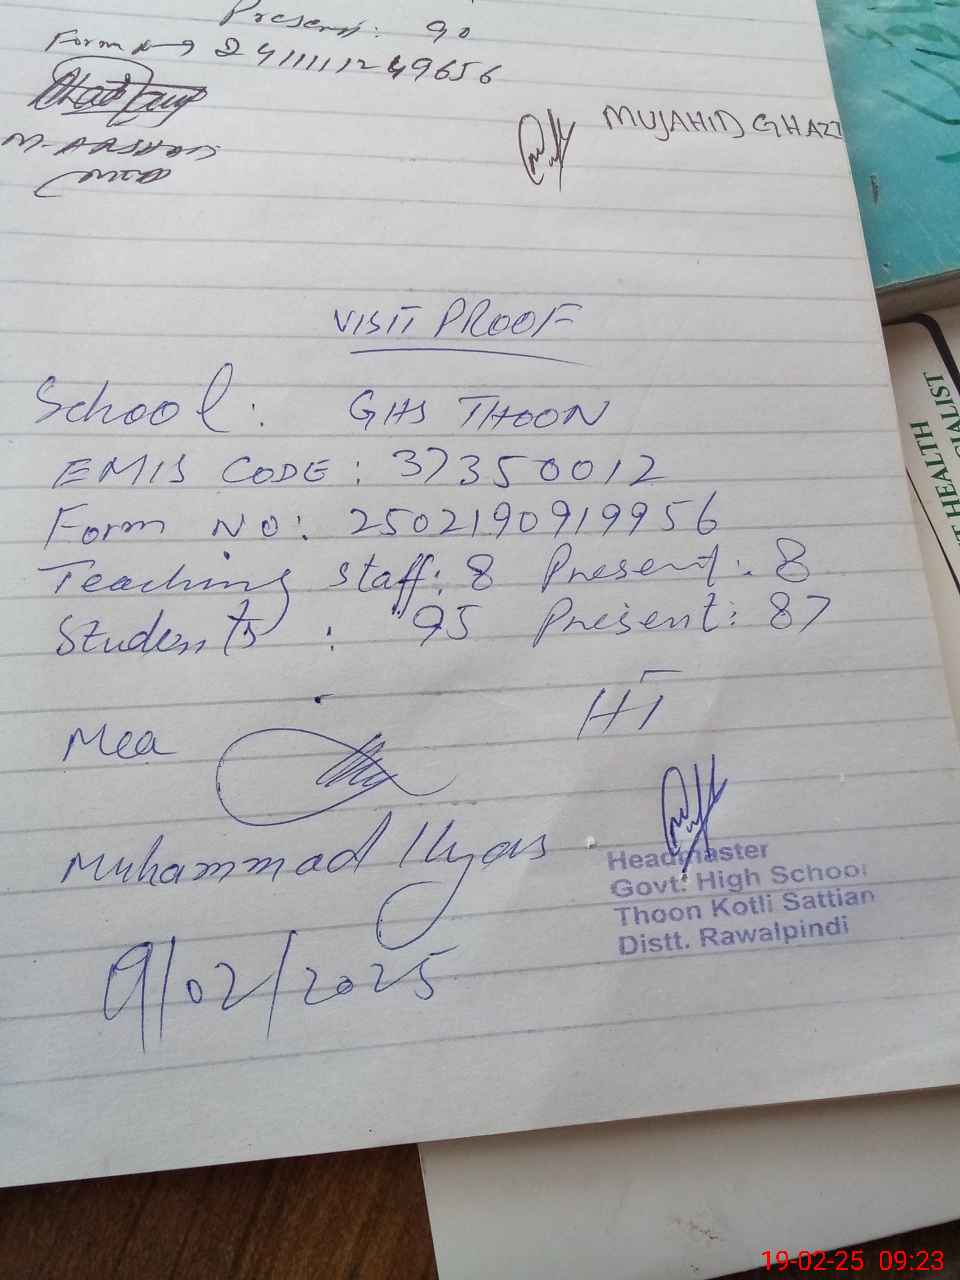 Present: 90
Form No 241111249656
M-ARSHAD
MUJAHID GHAZI
VISIT PROOF
School: GHS THOON
EMIS CODE: 37350012
Form No: 2502190919956
Teaching staff: 8 Present: 8
Students: 95 Present: 87
Mea
HT
Muhammad Ilyas
Headmaster
Govt. High School
Thoon Kotli Sattian
Distt. Rawalpindi
9/02/2025
HEALTH
IALIST
19-02-25 09:23